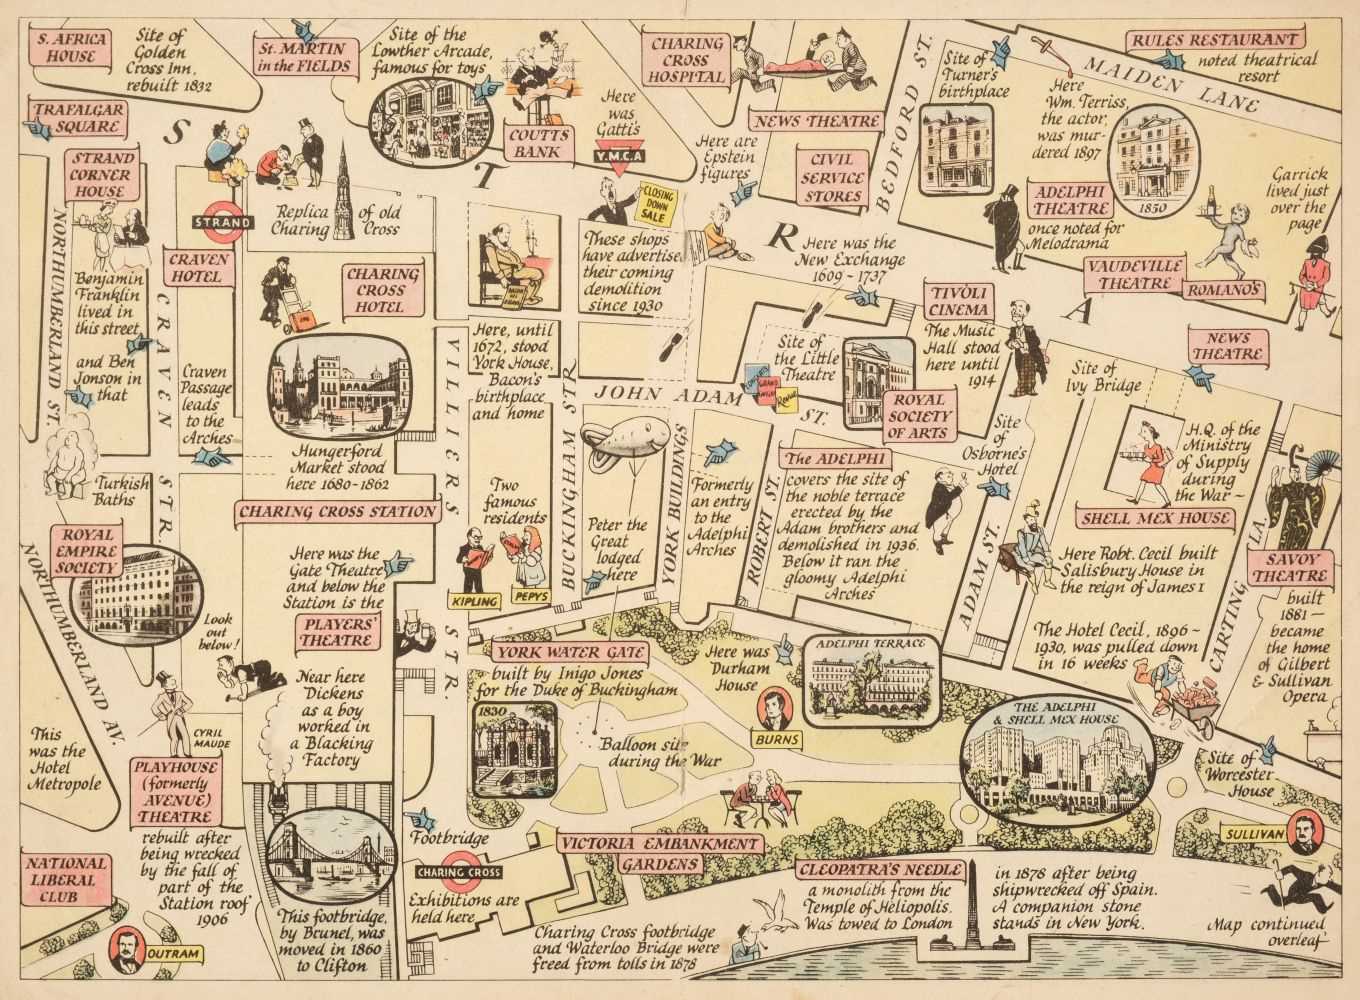 S. AFRICA
HOUSE
Site of
Golden
Cross Inn,
rebuilt 1832
St. MARTIN
in the FIELDS
Site of the
Lowther Arcade,
famous for toys
COUTTS
BANK
Here
was
Gatti's
Y.M.C.A
CHARING
CROSS
HOSPITAL
NEWS THEATRE
Here are
Epstein
figures
CIVIL
SERVICE
STORES
BEDFORD ST.
Site of
Turner's
birthplace
RULES RESTAURANT
noted theatrical
resort
MAIDEN LANE
Here
Wm. Terriss,
the actor,
was mur-
dered 1897
1850
ADELPHI
THEATRE
once noted for
Melodrama
Garrick
lived just
over the
page
VAUDEVILLE
THEATRE
ROMANO'S
TRAFALGAR
SQUARE
STRAND
CORNER
HOUSE
S T R A
STRAND
Replica of old
Charing Cross
CLOSING
DOWN
SALE
These shops
have advertised
their coming
demolition
since 1930
Here was the
New Exchange
1609-1737
TIVOLI
CINEMA
The Music
Hall stood
here until
1914
NEWS
THEATRE
NORTHUMBERLAND ST.
Benjamin
Franklin
lived in
this street
and Ben
Jonson in
that
CRAVEN STR.
CRAVEN
HOTEL
CHARING
CROSS
HOTEL
Craven
Passage
leads
to the
Arches
Hungerford
Market stood
here 1680-1862
VILLIERS STR.
Here, until
1672, stood
York House,
Bacon's
birthplace
and home
BUCKINGHAM STR.
JOHN ADAM ST.
Site of
the Little
Theatre
ROYAL
SOCIETY
OF ARTS
Site of
Ivy Bridge
Site
of
Osborne's
Hotel
H.Q. of the
Ministry
of Supply
during
the War-
SHELL MEX HOUSE
Here Robt. Cecil built
Salisbury House in
the reign of James I
The Hotel Cecil, 1896-
1930, was pulled down
in 16 weeks
Turkish
Baths
CHARING CROSS STATION
Two
famous
residents
KIPLING
PEPYS
Peter the
Great
lodged
here
YORK BUILDINGS
Formerly
an entry
to the
Adelphi
Arches
ROBERT ST.
The ADELPHI
covers the site of
the noble terrace
erected by the
Adam brothers and
demolished in 1936.
Below it ran the
gloomy Adelphi
Arches
ADAM ST.
CARTING LA.
SAVOY
THEATRE
built
1881-
became
the home
of Gilbert
& Sullivan
Opera
ROYAL
EMPIRE
SOCIETY
NORTHUMBERLAND AV.
Look
out
below!
Here was the
Gate Theatre
and below the
Station is the
PLAYERS'
THEATRE
Near here
Dickens
as a boy
worked in
a Blacking
Factory
YORK WATER GATE
built by Inigo Jones
for the Duke of Buckingham
1830
Balloon site
during the War
Here was
Durham
House
BURNS
ADELPHI TERRACE
THE ADELPHI
& SHELL MEX HOUSE
Site of
Worcester
House
SULLIVAN
This
was the
Hotel
Metropole
CYRIL
MAUDE
PLAYHOUSE
(formerly
AVENUE)
THEATRE
rebuilt after
being wrecked
by the fall of
part of the
Station roof
1906
NATIONAL
LIBERAL
CLUB
OUTRAM
This footbridge,
by Brunel, was
moved in 1860
to Clifton
Footbridge
CHARING CROSS
Exhibitions are
held here
VICTORIA EMBANKMENT
GARDENS
Charing Cross footbridge
and Waterloo Bridge were
freed from tolls in 1878
CLEOPATRA'S NEEDLE
a monolith from the
Temple of Heliopolis.
Was towed to London
in 1878 after being
shipwrecked off Spain.
A companion stone
stands in New York.
Map continued
overleaf